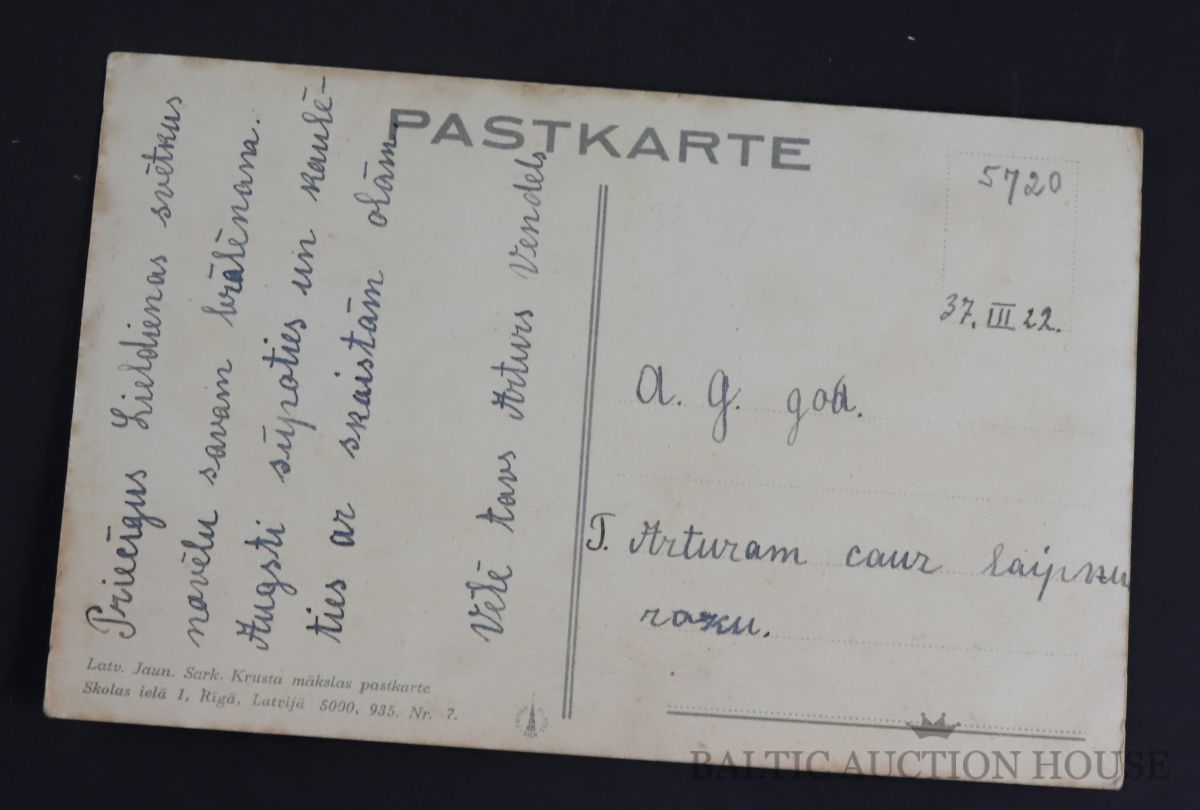 PASTKARTE
5720
37. III 22.
Priecīgus Lieldienas svētkus
novēlu savam brālēnam.
Augsti šūpoties un kaulē-
ties ar skaistām olām.
Vēlē tavs Arturs Vendels
A. G. god.
J. Arturam caur laipnu
roku.
Latv. Jaun. Sark. Krusta mākslas pastkarte
Skolas ielā 1, Rīgā, Latvijā 5000, 935. Nr. 7.
BALTIC AUCTION HOUSE